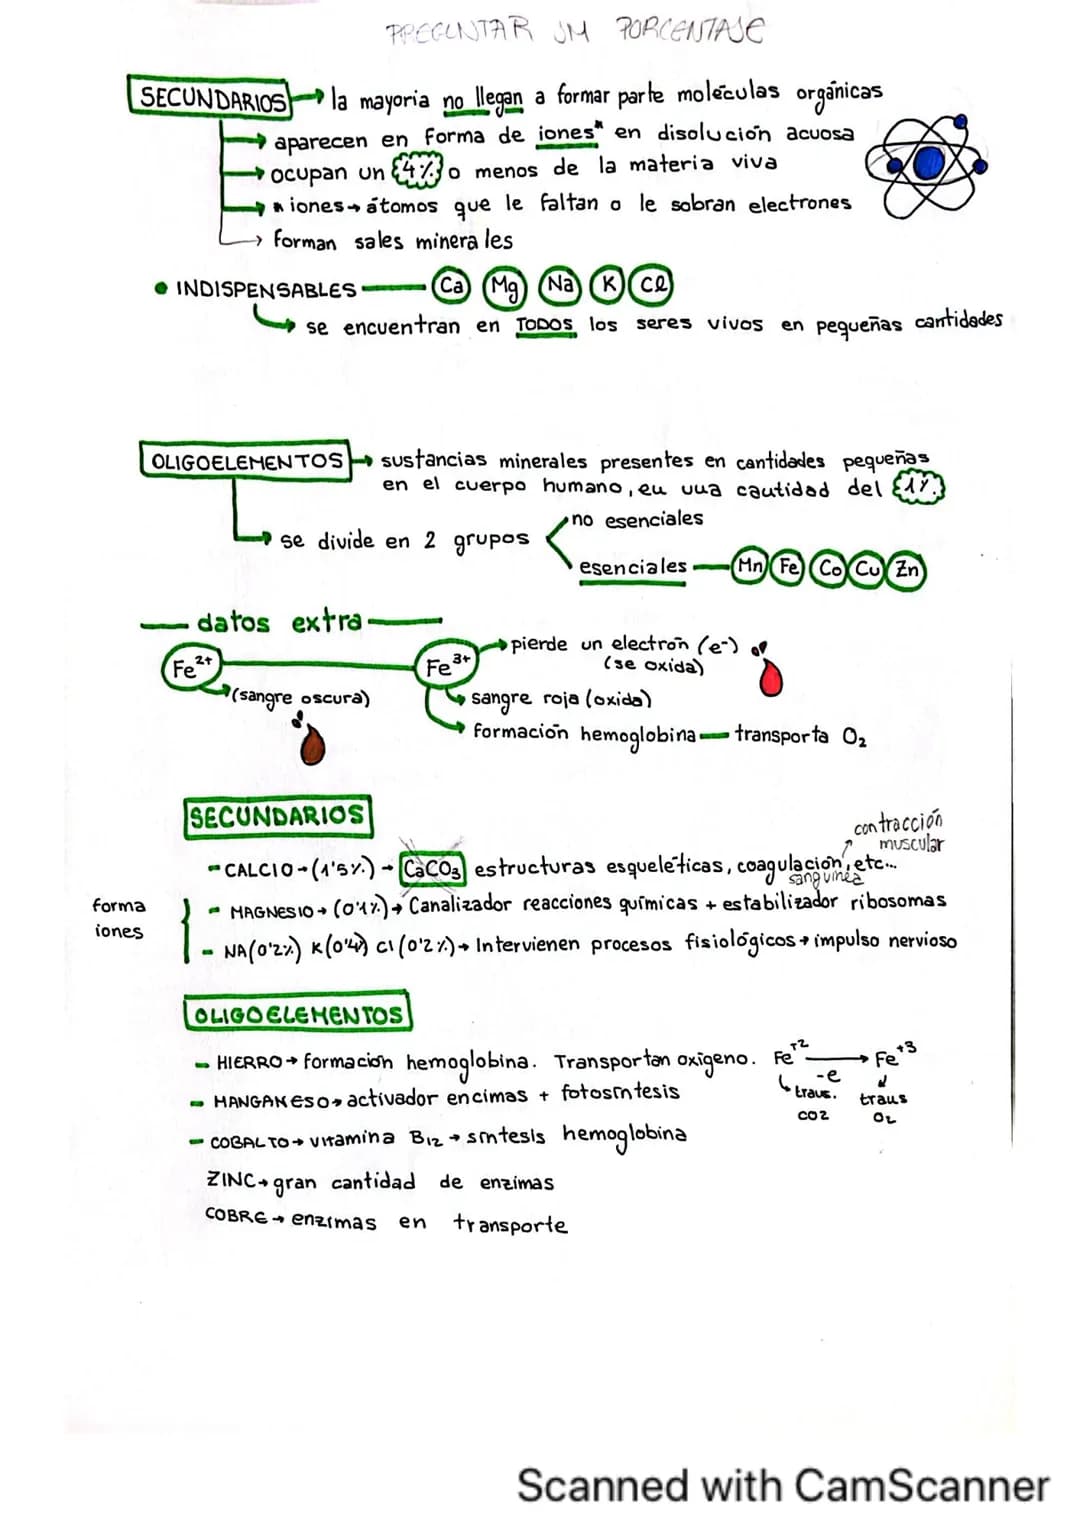 PREGUNTAR JM PORCENTAJE
SECUNDARIOS → la mayoria no llegan a formar parte moléculas orgánicas
→ aparecen en forma de iones* en disolución acuosa
→ ocupan un 4% o menos de la materia viva
→ * iones → átomos que le faltan o le sobran electrones
→ forman sales minerales
• INDISPENSABLES — Ca Mg Na K Cl
→ se encuentran en TODOS los seres vivos en pequeñas cantidades
OLIGOELEMENTOS → sustancias minerales presentes en cantidades pequeñas
en el cuerpo humano, en una cantidad del 1%.
→ se divide en 2 grupos
no esenciales
esenciales — Mn Fe Co Cu Zn
— datos extra —
Fe2+ — Fe3+ → pierde un electrón (e-)
(se oxida)
→ (sangre oscura)
→ sangre roja (oxido)
→ formación hemoglobina — transporta O2
SECUNDARIOS
contracción
muscular
- CALCIO → (1'5%) → CaCO3 estructuras esqueléticas, coagulación, etc...
sanguínea
forma
iones
- MAGNESIO → (0'1%) → Canalizador reacciones químicas + estabilizador ribosomas
- NA (0'2%) K (0'4%) Cl (0'2%) → Intervienen procesos fisiológicos → impulso nervioso
OLIGOELEMENTOS
- HIERRO → formación hemoglobina. Transportan oxígeno. Fe+2 → Fe+3
-e
trans.
CO2
trans
O2
- MANGANESO → activador encimas + fotosíntesis
- COBALTO → vitamina B12 → síntesis hemoglobina
ZINC → gran cantidad de enzimas
COBRE → enzimas en transporte
Scanned with CamScanner